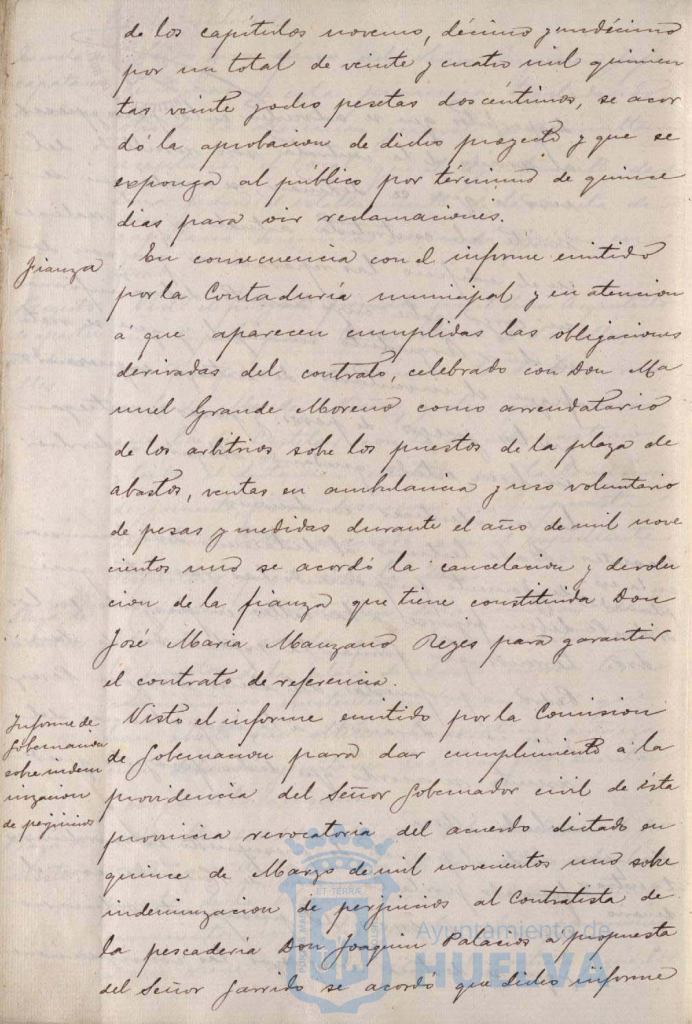 de los capítulos noveno, décimo y undécimo
por un total de veinte y cuatro mil quinien
tas veinte y ocho pesetas dos céntimos, se acor
dó la aprobacion de dicho proyecto y que se
exponga al público por término de quince
dias para oir reclamaciones.
Fianza
En consecuencia con el informe emitido
por la Contaduría municipal y en atencion
á que aparecen cumplidas las obligaciones
derivadas del contrato, celebrado con Don Ma
nuel Grande Moreno como arrendatario
de los arbitrios sobre los puestos de la plaza de
abastos, ventas en ambulancia y uso voluntario
de pesas y medidas durante el año de mil nove
cientos uno se acordó la cancelacion y devolu
cion de la fianza que tiene constituida Don
José Maria Manzano Reyes para garantir
el contrato de referencia.
Informe de
Gobernacion
sobre indem
nizacion
de perjuicios
Visto el informe emitido por la Comision
de Gobernacion para dar cumplimiento á la
providencia del Señor Gobernador civil de ésta
provincia revocatoria del acuerdo dictado en
quince de Marzo de mil novecientos uno sobre
indemnizacion de perjuicios al Contratista de
la pescaderia Don Joaquin Palacios a propuesta
del Señor Garrido se acordó que dicho informe
Ayuntamiento de
HUELVA